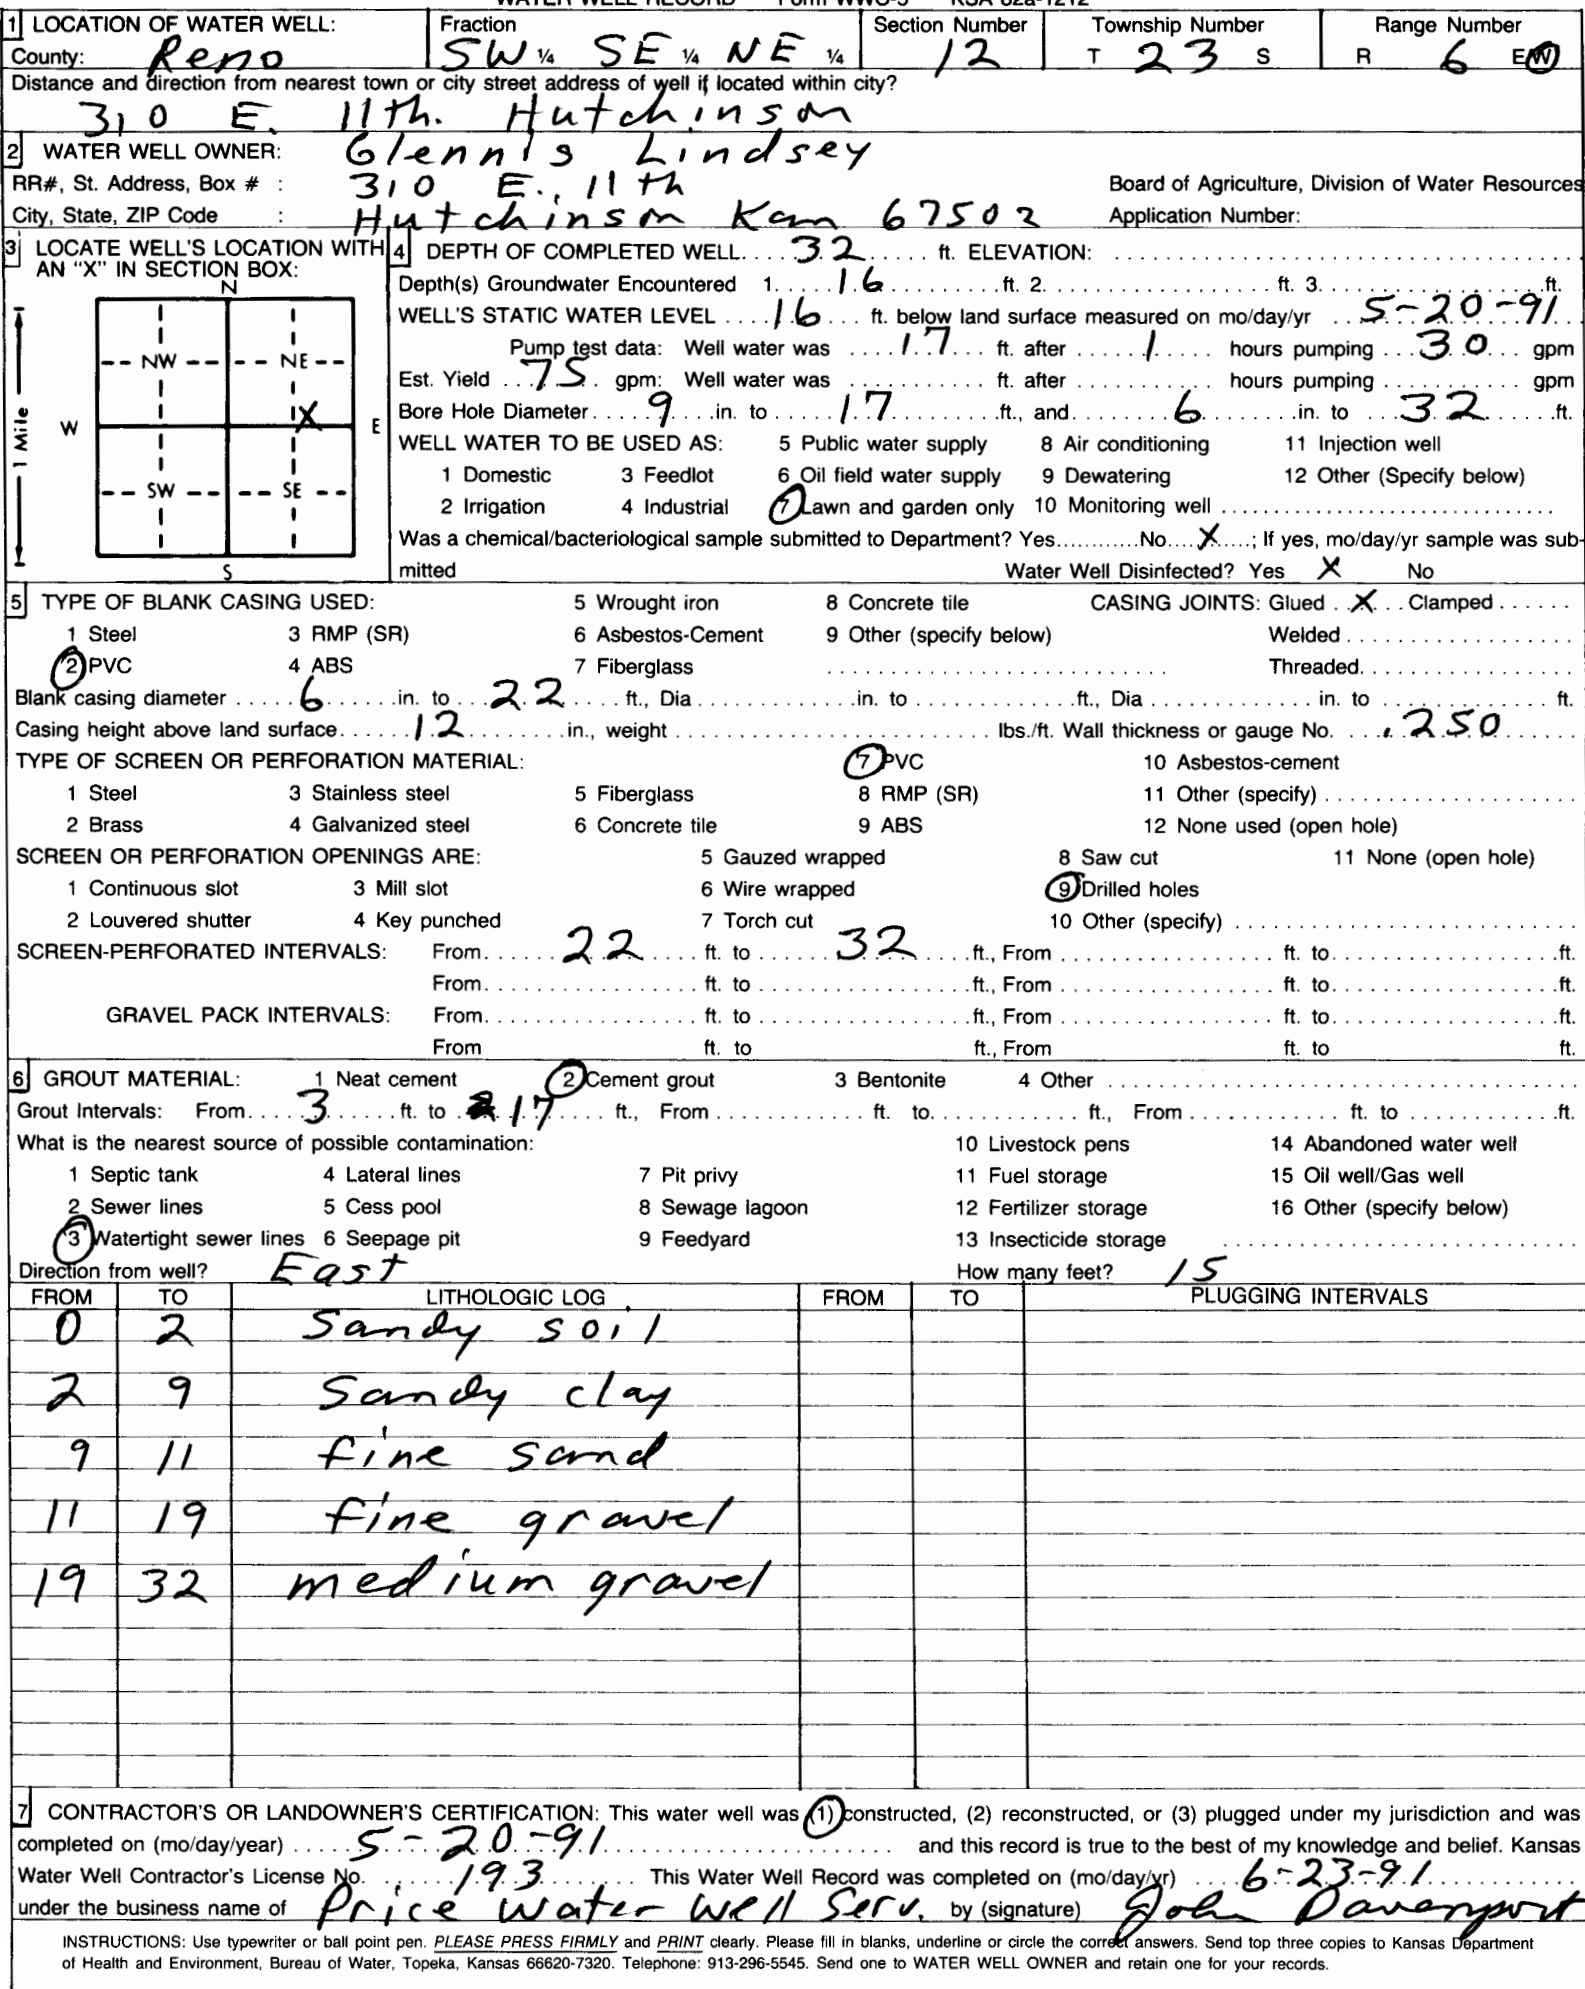 WATER WELL RECORD Form WWC-5 KSA 82a-1212
1 LOCATION OF WATER WELL: Fraction Section Number Township Number Range Number
County: Reno SW ¼ SE ¼ NE ¼ 12 T 23 S R 6 E/W
Distance and direction from nearest town or city street address of well if located within city?
310 E. 11th. Hutchinson
2 WATER WELL OWNER: Glennis Lindsey
RR#, St. Address, Box # : 310 E., 11th Board of Agriculture, Division of Water Resources
City, State, ZIP Code : Hutchinson Kan 67502 Application Number:
3 LOCATE WELL'S LOCATION WITH AN "X" IN SECTION BOX:
N
NW NE
1 Mile W X E
SW SE
S
4 DEPTH OF COMPLETED WELL....32.... ft. ELEVATION:
Depth(s) Groundwater Encountered 1....16....ft. 2....ft. 3....ft.
WELL'S STATIC WATER LEVEL ....16.... ft. below land surface measured on mo/day/yr ...5-20-91
Pump test data: Well water was ....17.... ft. after ....1.... hours pumping ...30... gpm
Est. Yield ...75.. gpm: Well water was .... ft. after .... hours pumping .... gpm
Bore Hole Diameter....9....in. to ....17....ft., and....6....in. to ....32....ft.
WELL WATER TO BE USED AS: 5 Public water supply 8 Air conditioning 11 Injection well
1 Domestic 3 Feedlot 6 Oil field water supply 9 Dewatering 12 Other (Specify below)
2 Irrigation 4 Industrial 7 Lawn and garden only 10 Monitoring well ....
Was a chemical/bacteriological sample submitted to Department? Yes....No....X....; If yes, mo/day/yr sample was sub-
mitted Water Well Disinfected? Yes X No
5 TYPE OF BLANK CASING USED: 5 Wrought iron 8 Concrete tile CASING JOINTS: Glued ..X... Clamped ....
1 Steel 3 RMP (SR) 6 Asbestos-Cement 9 Other (specify below) Welded ....
2 PVC 4 ABS 7 Fiberglass .... Threaded....
Blank casing diameter ....6....in. to ...22.... ft., Dia ....in. to ....ft., Dia .... in. to .... ft.
Casing height above land surface....12....in., weight .... lbs./ft. Wall thickness or gauge No. ...250....
TYPE OF SCREEN OR PERFORATION MATERIAL: 7 PVC 10 Asbestos-cement
1 Steel 3 Stainless steel 5 Fiberglass 8 RMP (SR) 11 Other (specify) ....
2 Brass 4 Galvanized steel 6 Concrete tile 9 ABS 12 None used (open hole)
SCREEN OR PERFORATION OPENINGS ARE: 5 Gauzed wrapped 8 Saw cut 11 None (open hole)
1 Continuous slot 3 Mill slot 6 Wire wrapped 9 Drilled holes
2 Louvered shutter 4 Key punched 7 Torch cut 10 Other (specify) ....
SCREEN-PERFORATED INTERVALS: From....22.... ft. to ....32....ft., From .... ft. to....ft.
From.... ft. to ....ft., From .... ft. to....ft.
GRAVEL PACK INTERVALS: From.... ft. to ....ft., From .... ft. to....ft.
From ft. to ft., From ft. to ft.
6 GROUT MATERIAL: 1 Neat cement 2 Cement grout 3 Bentonite 4 Other ....
Grout Intervals: From....3....ft. to ...17.... ft., From .... ft. to.... ft., From .... ft. to ....ft.
What is the nearest source of possible contamination: 10 Livestock pens 14 Abandoned water well
1 Septic tank 4 Lateral lines 7 Pit privy 11 Fuel storage 15 Oil well/Gas well
2 Sewer lines 5 Cess pool 8 Sewage lagoon 12 Fertilizer storage 16 Other (specify below)
3 Watertight sewer lines 6 Seepage pit 9 Feedyard 13 Insecticide storage ....
Direction from well? East How many feet? 15
FROM TO LITHOLOGIC LOG FROM TO PLUGGING INTERVALS
0 2 Sandy soil
2 9 Sandy clay
9 11 fine sand
11 19 fine gravel
19 32 medium gravel
7 CONTRACTOR'S OR LANDOWNER'S CERTIFICATION: This water well was (1) constructed, (2) reconstructed, or (3) plugged under my jurisdiction and was
completed on (mo/day/year) ....5-20-91.... and this record is true to the best of my knowledge and belief. Kansas
Water Well Contractor's License No. ....193.... This Water Well Record was completed on (mo/day/yr) ...6-23-91....
under the business name of Price Water Well Serv. by (signature) John Davenport
INSTRUCTIONS: Use typewriter or ball point pen. PLEASE PRESS FIRMLY and PRINT clearly. Please fill in blanks, underline or circle the correct answers. Send top three copies to Kansas Department
of Health and Environment, Bureau of Water, Topeka, Kansas 66620-7320. Telephone: 913-296-5545. Send one to WATER WELL OWNER and retain one for your records.